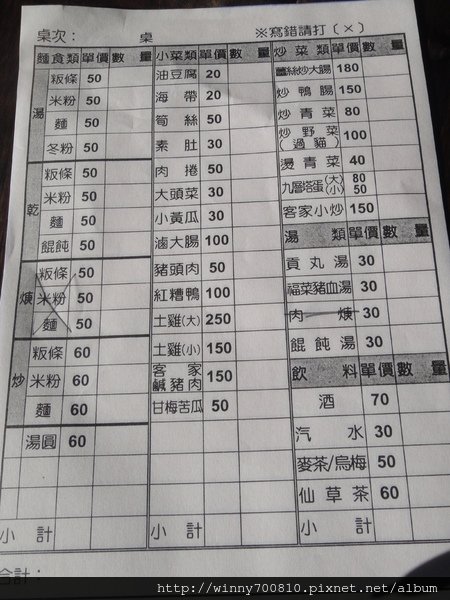 桌次： 桌 ※寫錯請打（×）
麵食類 單價 數 量
湯
粄條 50
米粉 50
麵 50
冬粉 50
乾
粄條 50
米粉 50
麵 50
餛飩 50
焿
粄條 50
米粉 50
麵 50
炒
粄條 60
米粉 60
麵 60
湯圓 60
小 計
小菜類 單價 數 量
油豆腐 20
海 帶 20
筍 絲 50
素 肚 30
肉 捲 50
大頭菜 30
小黃瓜 30
滷大腸 100
豬頭肉 50
紅糟鴨 100
土雞(大) 250
土雞(小) 150
客 家鹹豬肉 150
甘梅苦瓜 50
小 計
炒 菜 類 單價 數 量
薑絲炒大腸 180
炒 鴨 腸 150
炒 青 菜 80
炒 野 菜（過貓） 100
燙 青 菜 40
九層塔蛋(大)(小) 80 50
客家小炒 150
湯 類 單價 數 量
貢 丸 湯 30
福菜豬血湯 30
肉 焿 30
餛 飩 湯 30
飲 料 單價 數 量
酒 70
汽 水 30
麥茶/烏梅 50
仙 草 茶 60
小 計
合計：
http://winny700810.pixnet.net/album